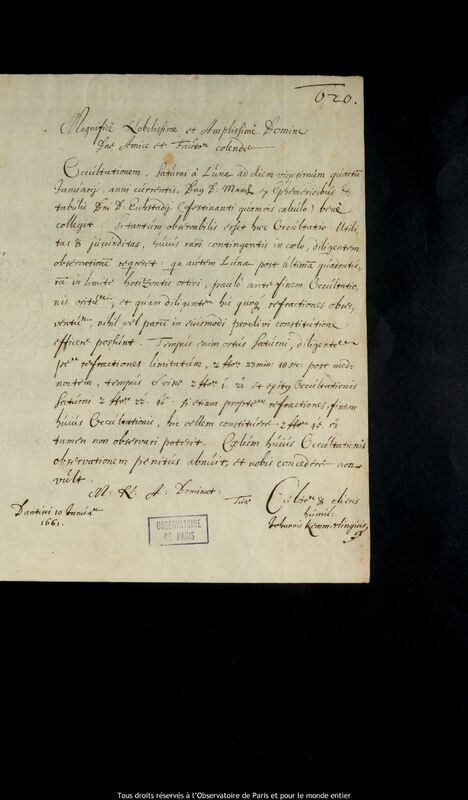 620.
Magnifice Nobilissime et Amplissime Domine
Dne Amice et Fautor colende
Occultationem Saturni à Luna ad diem vigesimum quartum
Januarij, anni currentis, Dng D. March ex Ephemeribus &
tabulis Dni D. Eichstadij (festinanti quamvis calculo) bene
collegit. Si tantum observabilis esset haec Occultatio. Utili,
tas & jucunditas, huius rari contingentis in coelo, diligentem
observationē : qa autem Luna post ultimam quadratu,
rā in limite horizontis ortivi, paulo ante finem Occultatio,
nis oritur, et quam diligenter hic quoq refractiones obser,
ventur, nihil vel parū in eiusmodi proclivi constitutione
efficere possunt. Tempus enim ortus Saturni, diligenter
per refractiones limitatum, 2 hor 23 min 18 sec: post med:
noctem, tempus 2 hor et Occultationis
Saturni 2 hor 22. 16. si etiam propter refractiones, finem
huius Occultationis, hic vellem constituere 2 hor 42.
tamen non observari poterit. Coelum huius Occultationis
observationem penitus abnuit, et nobis concedere non
vult.
M: N: A: Dominat: Tuae
Cultor & cliens
humil:
Dantisci 10 Januar
1661.
Johannis
OBSERVATOIRE
DE PARIS
Tous droits réservés à l'Observatoire de Paris et pour le monde entier